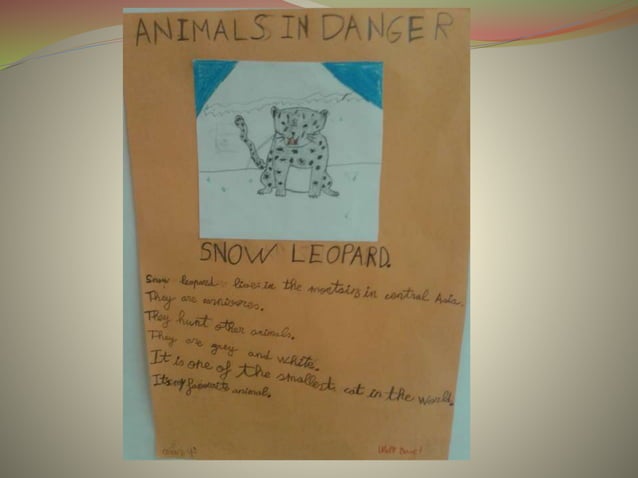 ANIMALS IN DANGER
SNOW LEOPARD.
Snow leopard lives in the montains in central Asia.
They are carnivores.
They hunt other animals.
They are grey and white.
It is one of the smallest cat in the world.
Its my favourite animal.
Well Done!